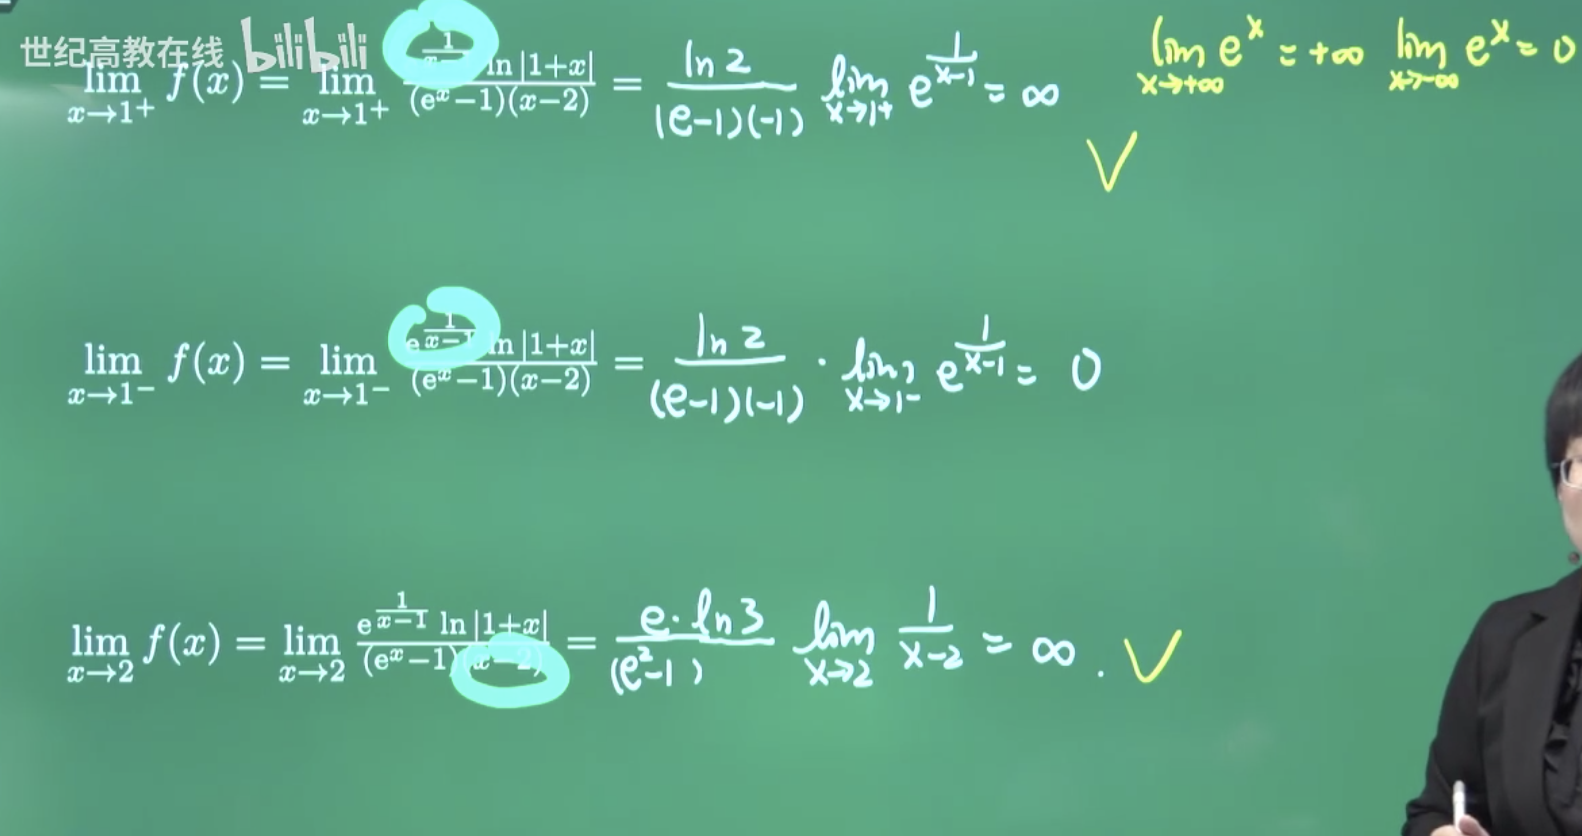 世纪高教在线 bilibili
lim_{x→1⁺} f(x) = lim_{x→1⁺} 1 ln|1+x| / (eˣ−1)(x−2) = ln 2 / (e−1)(−1) lim_{x→1⁺} e^{1/(x−1)} = ∞
lim_{x→+∞} eˣ = +∞ lim_{x→−∞} eˣ = 0
√
lim_{x→1⁻} f(x) = lim_{x→1⁻} e^{1/(x−1)} ln|1+x| / (eˣ−1)(x−2) = ln 2 / (e−1)(−1) · lim_{x→1⁻} e^{1/(x−1)} = 0
lim_{x→2} f(x) = lim_{x→2} e^{1/(x−1)} ln|1+x| / (eˣ−1)(x−2) = e·ln3 / (e²−1) lim_{x→2} 1/(x−2) = ∞. √